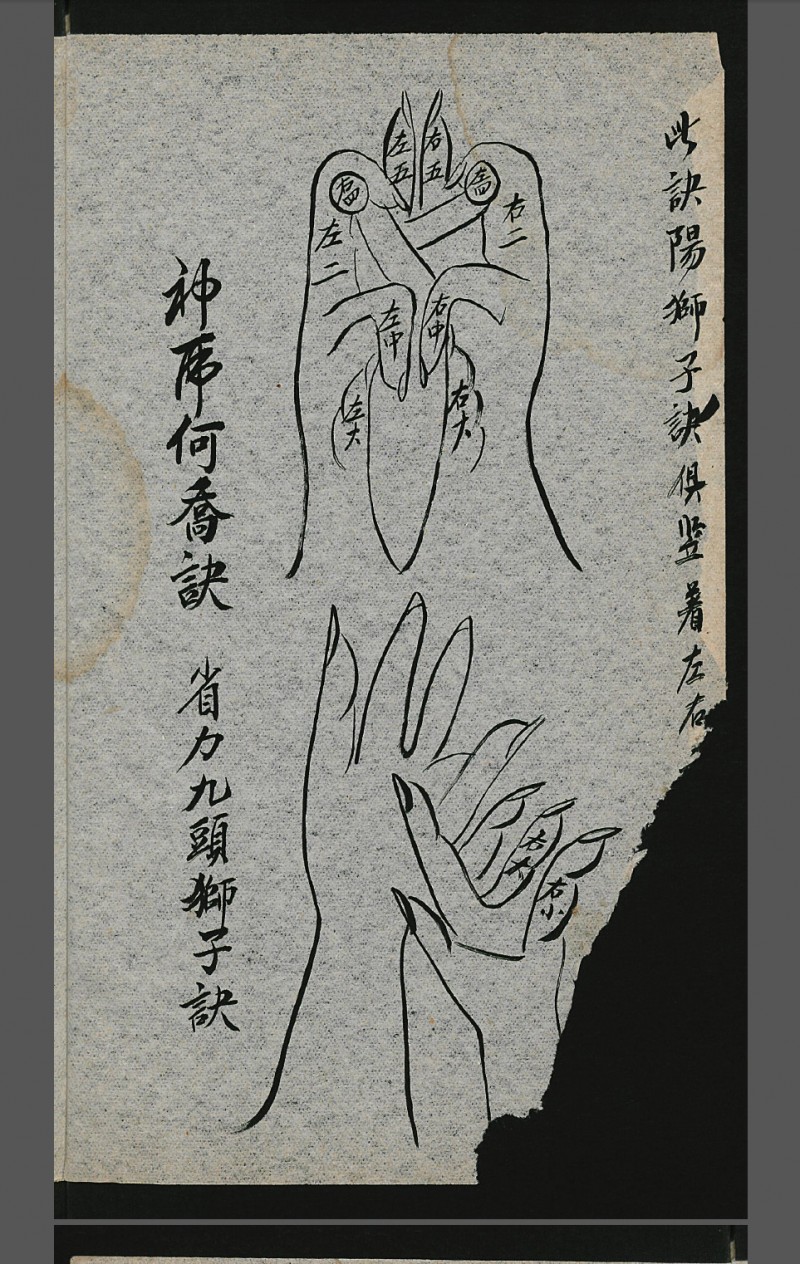 此訣陽獅子訣俱竖着左右
左五
右五
右二
左二
左中
右中
左大
右大
神席何喬訣
省力九頭獅子訣
右小